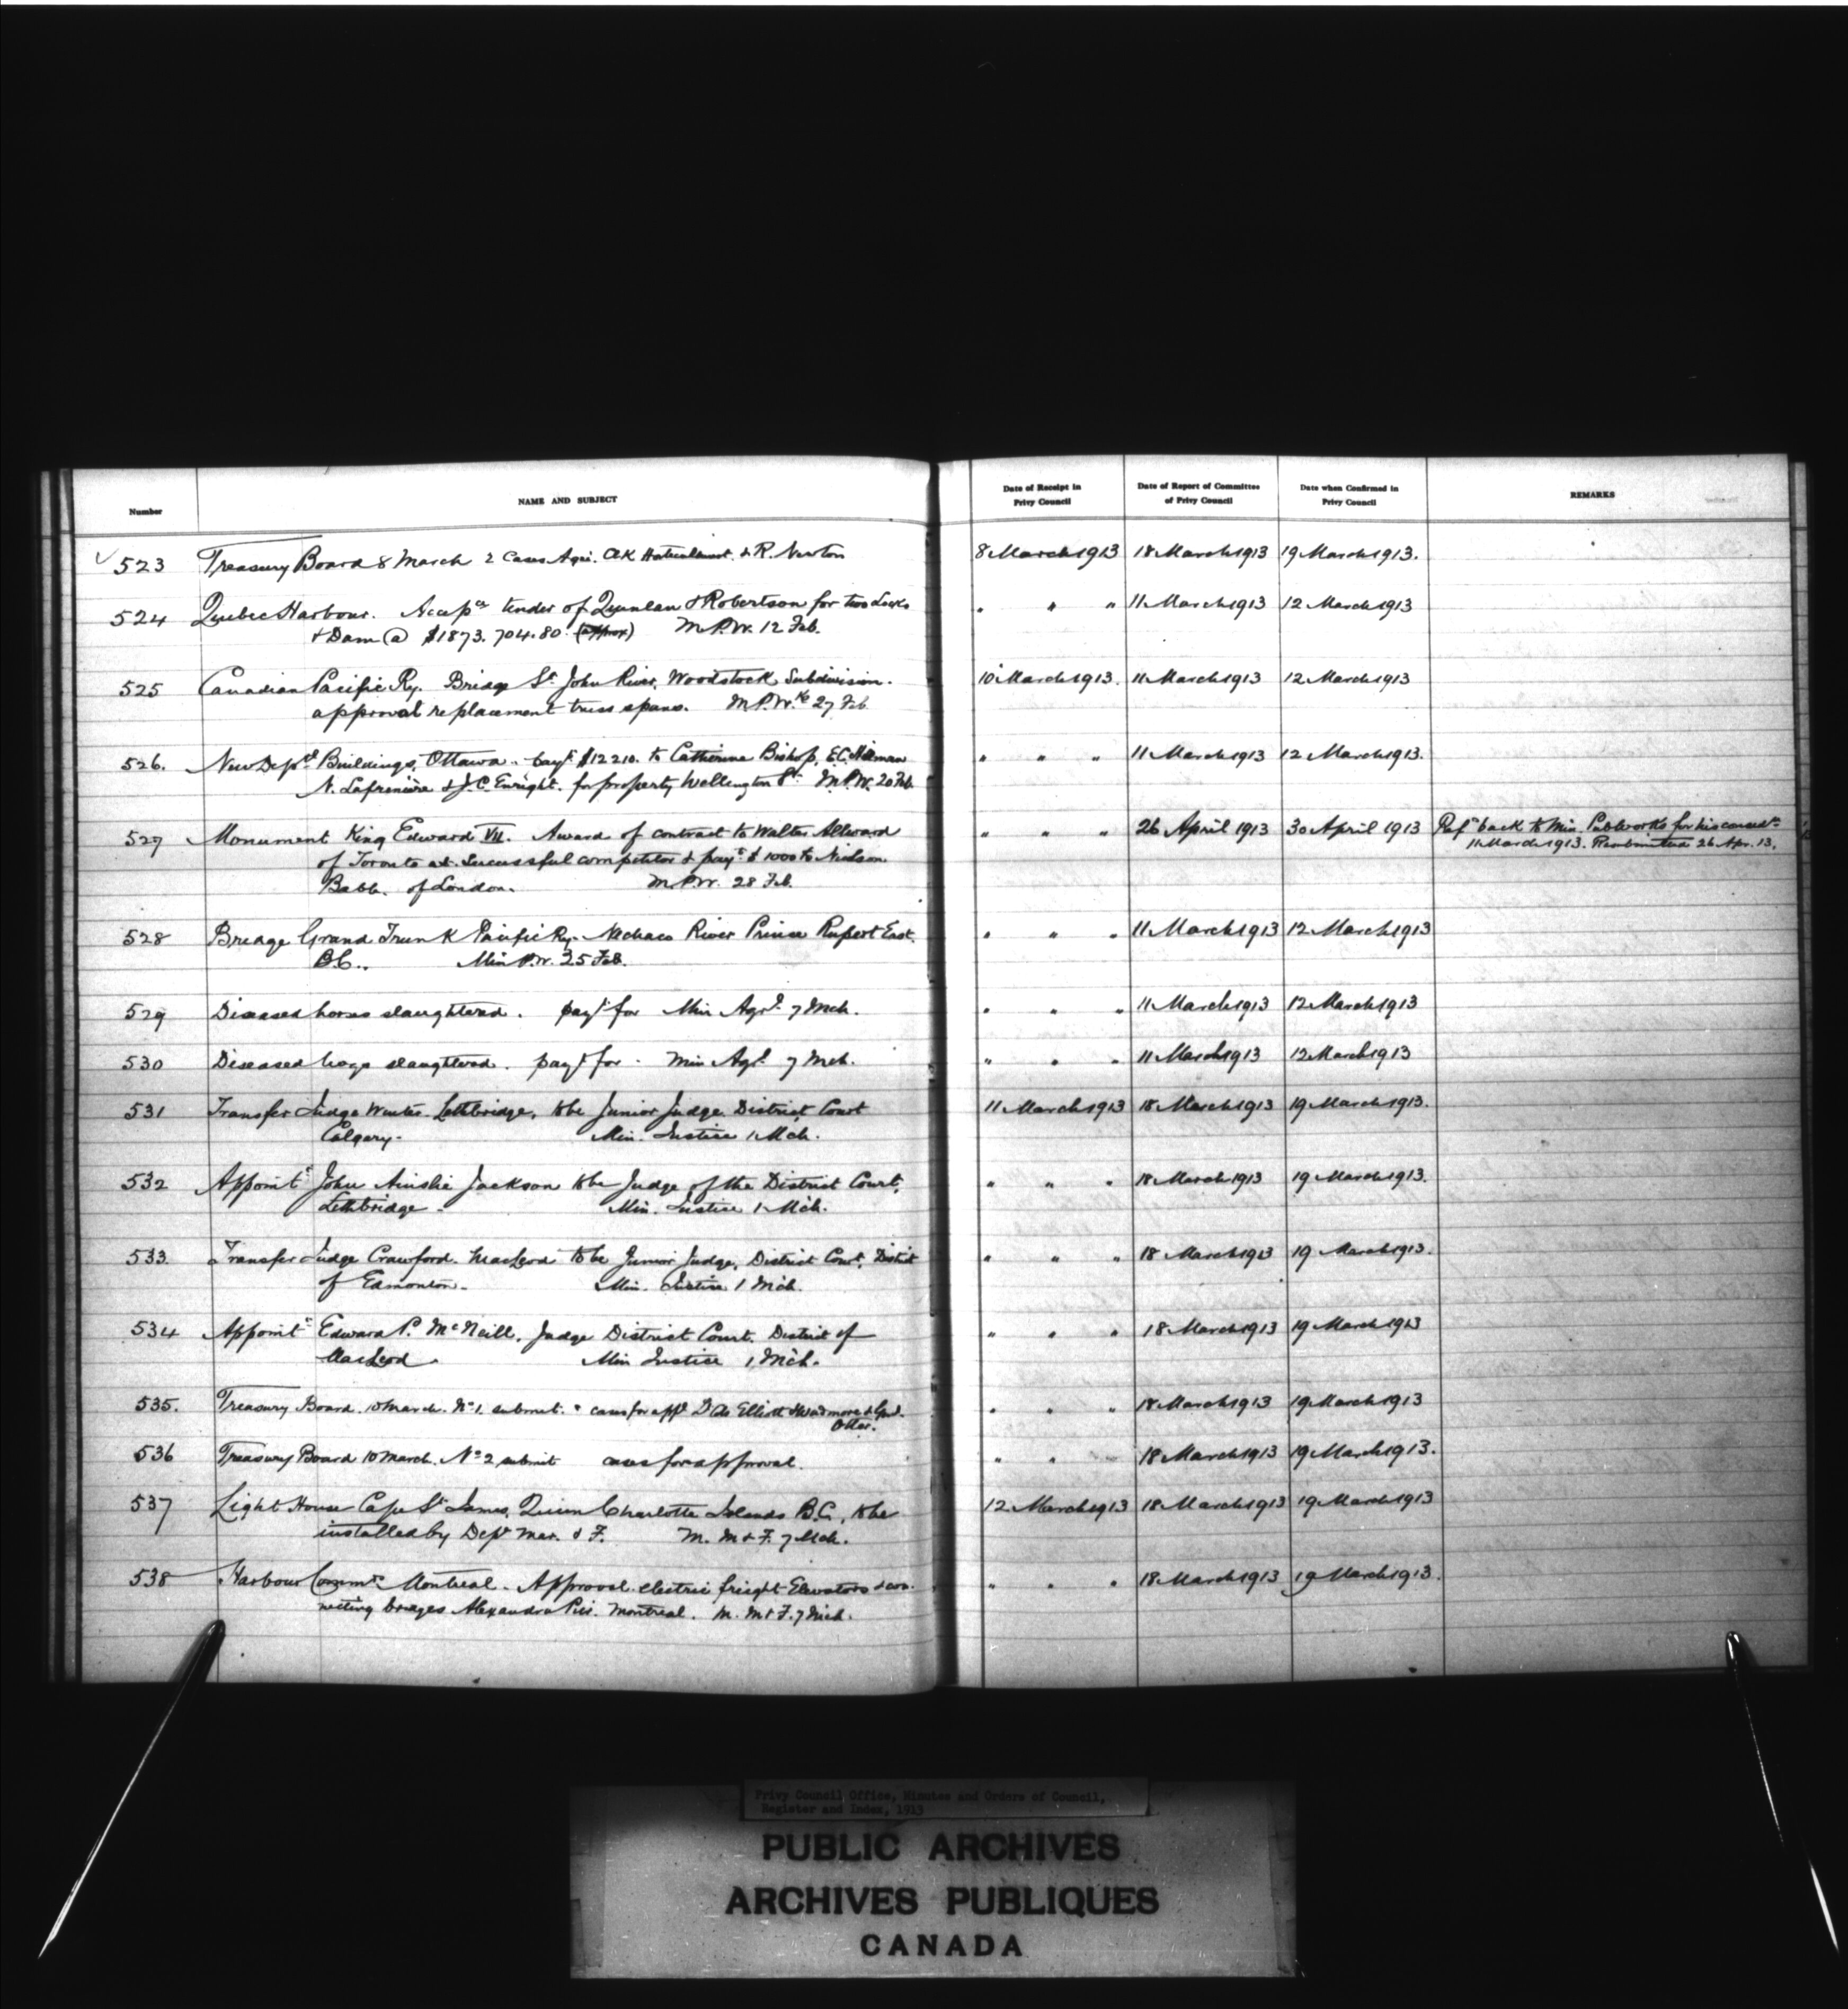 Number NAME AND SUBJECT Date of Receipt in Privy Council Date of Report of Committee of Privy Council Date when Confirmed in Privy Council REMARKS
523 Treasury Board 8 March 2 Cases Agri. & R. Newton 8 March 1913 18 March 1913 19 March 1913.
524 Quebec Harbour. Accepce tender of Quinlan & Robertson for two Locks " " " 11 March 1913 12 March 1913
& Dam @ $1873.704.80 (approx) M.P.W. 12 Feb.
525 Canadian Pacific Ry. Bridge St John River, Woodstock Subdivision. 10 March 1913. 11 March 1913 12 March 1913
approval replacement truss spans. M.P.Wks 27 Feb
526. New Deptl Buildings, Ottawa. payt $12210. to Catherine Bishop, E.C. " " " 11 March 1913 12 March 1913.
N. Lafrenière & J.C. Enright. for property Wellington St. M.P.W. 20 Feb.
527 Monument King Edward VII. Award of contract to Walter Allward " " " 26 April 1913 30 April 1913 Refd back to Min. Pub Works for his consdn
of Toronto as successful competitor & payt $1000 to 11 March 1913. Resubmitted 26 Apr. 13.
Babb. of London. M.P.W. 28 Feb.
528 Bridge Grand Trunk Pacific Ry. Nechaco River Prince Rupert East. " " " 11 March 1913 12 March 1913
B.C. Min P.W. 25 Feb.
529 Diseased horses slaughtered. payt for Min Agrl. 7 Mch. " " " 11 March 1913 12 March 1913
530 Diseased hogs slaughtered. payt for. Min Agl. 7 Mch. " " " 11 March 1913 12 March 1913
531 Transfer Judge Winter. Lethbridge, to be Junior Judge District Court 11 March 1913 18 March 1913 19 March 1913.
Calgary. Min. Justice 1 Mch.
532 Appointt John Ainslie Jackson to be Judge of the District Court, " " " 18 March 1913 19 March 1913.
Lethbridge. Min. Justice 1 Mch.
533. Transfer Judge Crawford. MacLeod to be Junior Judge, District Court, District " " " 18 March 1913 19 March 1913.
of Edmonton. Min. Justice 1 Mch.
534 Appointt Edward P. McNeill, Judge District Court. District of " " " 18 March 1913 19 March 1913
MacLeod. Min Justice 1 Mch.
535. Treasury Board. 10 March. No 1. submit. cases for appl Elliott & Genl. " " " 18 March 1913 19 March 1913
Otter.
536 Treasury Board 10 March. No 2 submit cases for approval. " " " 18 March 1913 19 March 1913.
537 Light House Cape St James, Queen Charlotte Islands B.C., to be 12 March 1913 18 March 1913 19 March 1913
installed by Dept Mar. & F. M. M & F. 7 Mch.
538 Harbour Commrs Montreal. Approval. electric freight Elevators & con- " " " 18 March 1913 19 March 1913.
necting bridges Alexandra Pier. Montreal. M. M & F. 7 Mch.
Privy Council Office, Minutes and Orders of Council,
Register and Index, 1913
PUBLIC ARCHIVES
ARCHIVES PUBLIQUES
CANADA